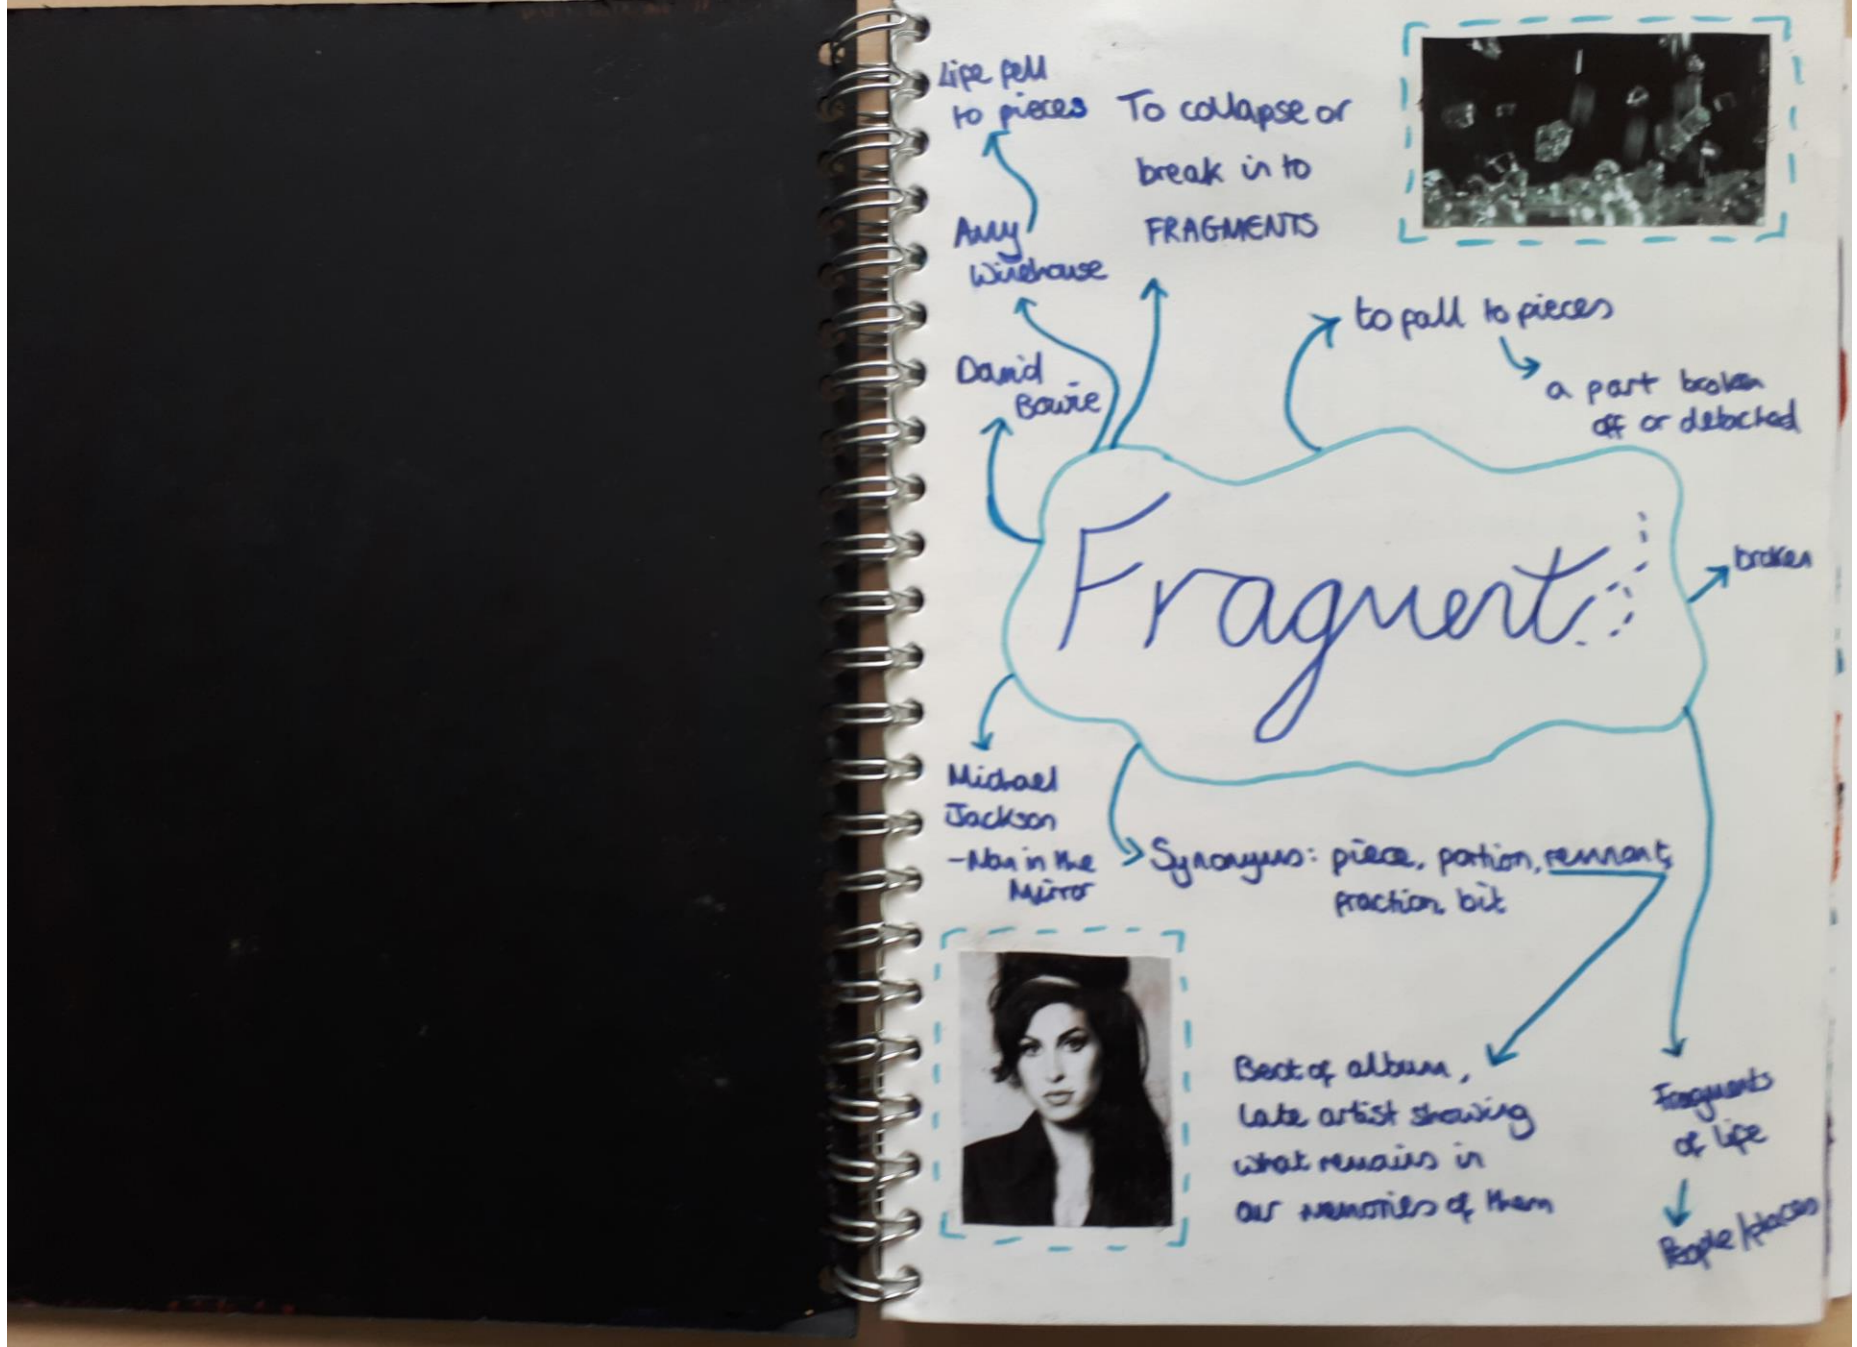 Life fell
to pieces
To collapse or
break in to
FRAGMENTS
Amy
Winehouse
David
Bowie
to fall to pieces
a part broken
off or detached
Fragments
broken
Michael
Jackson
-Man in the
Mirror
Synonyms: piece, portion, remnant,
fraction, bit
Best of album,
late artist showing
what remains in
our memories of them
Fragments
of life
People/places